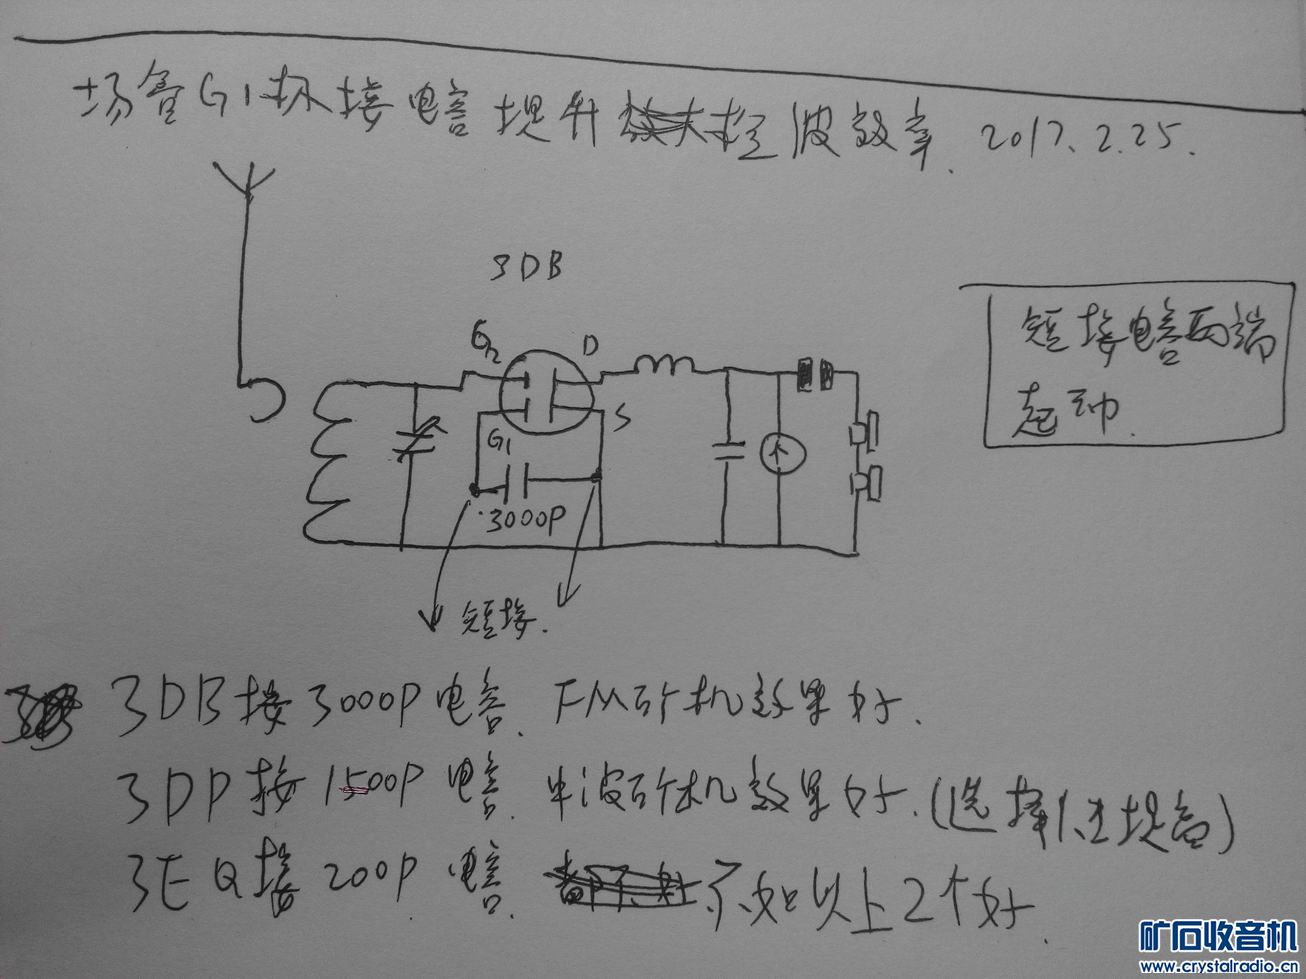 场管G1极接电容提升检波效率. 2017.2.25.
3DB
G2 D
G1 S
3000P
短接.
短接电容两端
起动.
3DB接3000P电容. FM矿机效果好.
3DP接1500P电容. 中波矿机效果好.(选择性提高)
3EQ接200P电容. 不如以上2个好.
矿石收音机
www.crystalradio.cn